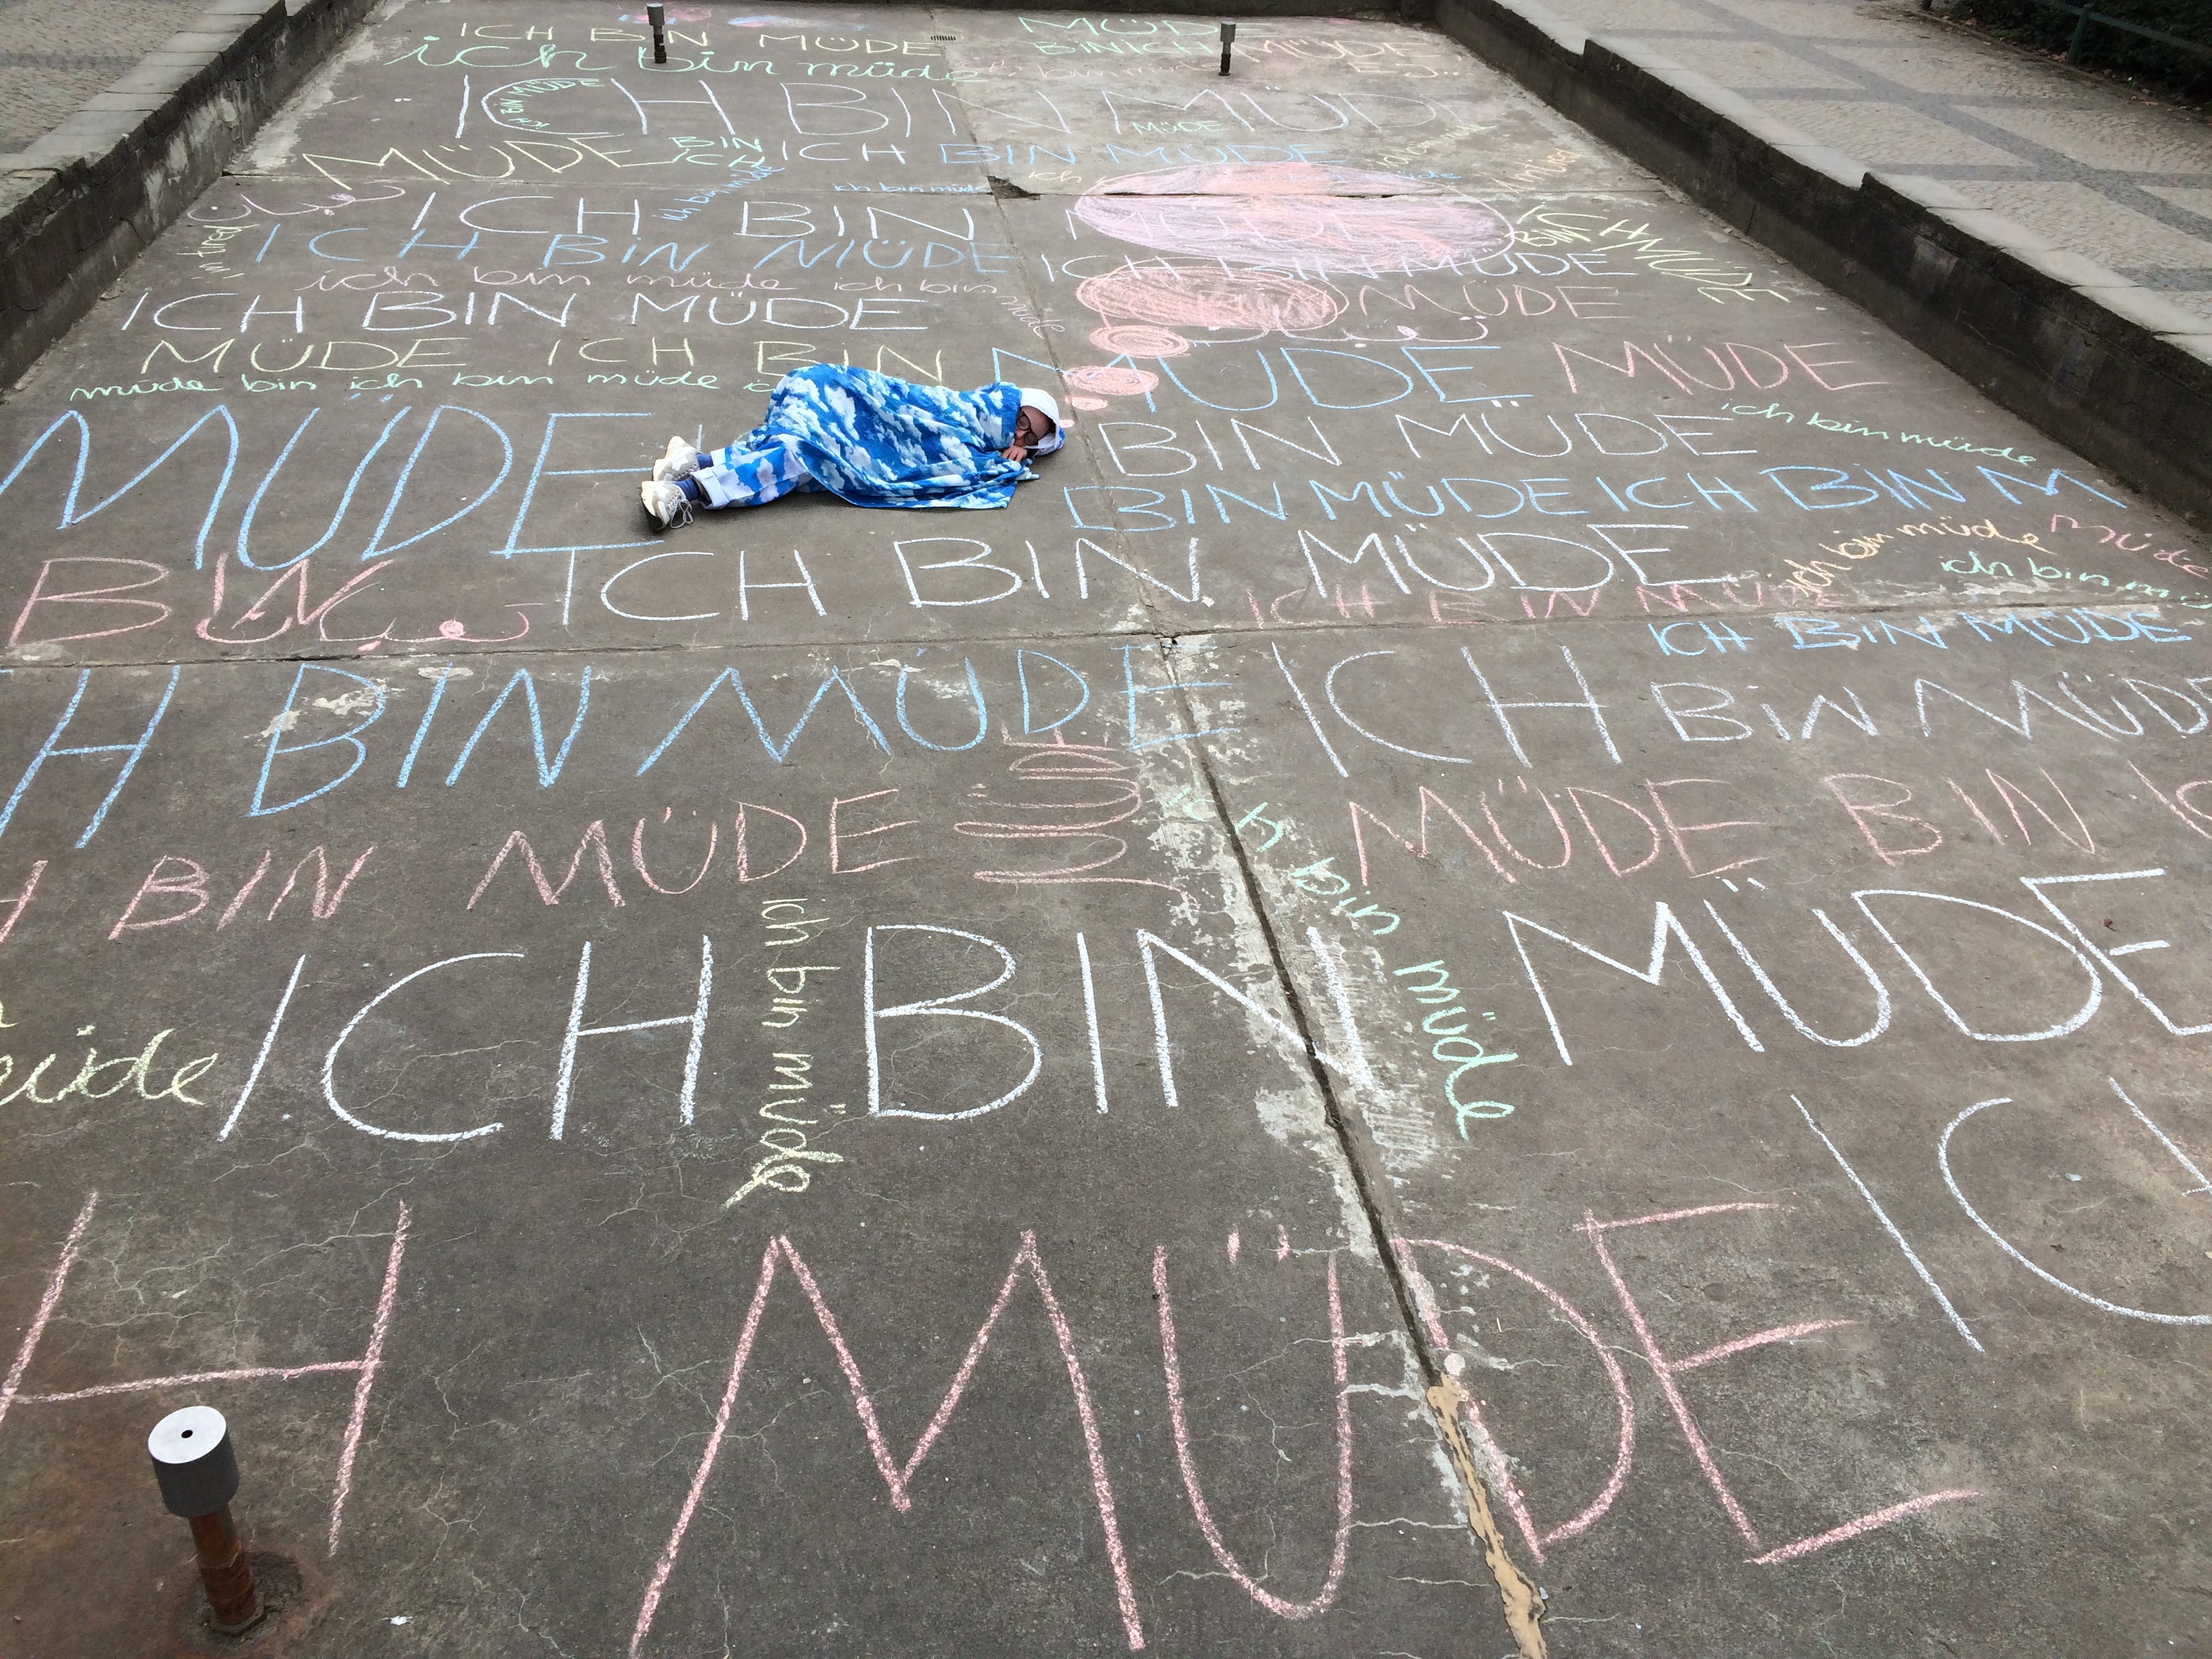 ICH BIN MÜDE
MÜDE
ich bin müde
BIN ICH MÜDE
ICH BIN MÜDE
ICH BIN MÜDE
MÜDE
MÜDE BIN ICH
ICH BIN MÜDE
ich bin müde
ich bin müde
ich
I'm tired
ICH BIN MÜDE
ICH BIN MÜDE
I'm tired
ICH BIN MÜDE
ICH BIN MÜDE
ich bin müde ich bin müde
ICH BIN MÜDE
MÜDE
MÜDE ICH BIN MÜDE MÜDE
müde bin ich bin müde
MÜDE
BIN MÜDE
ich bin müde
BIN MÜDE ICH BIN M
BIN
ICH BIN MÜDE
ich bin müde
müde
ich bin mü
ICH BIN MÜDE
ICH BIN MÜDE
H BIN MÜDE
ICH BIN MÜDE
H BIN MÜDE
müde
ich bin müde
MÜDE BIN IC
ich bin müde
müde
ICH BIN MÜDE
ICH
H MÜDE